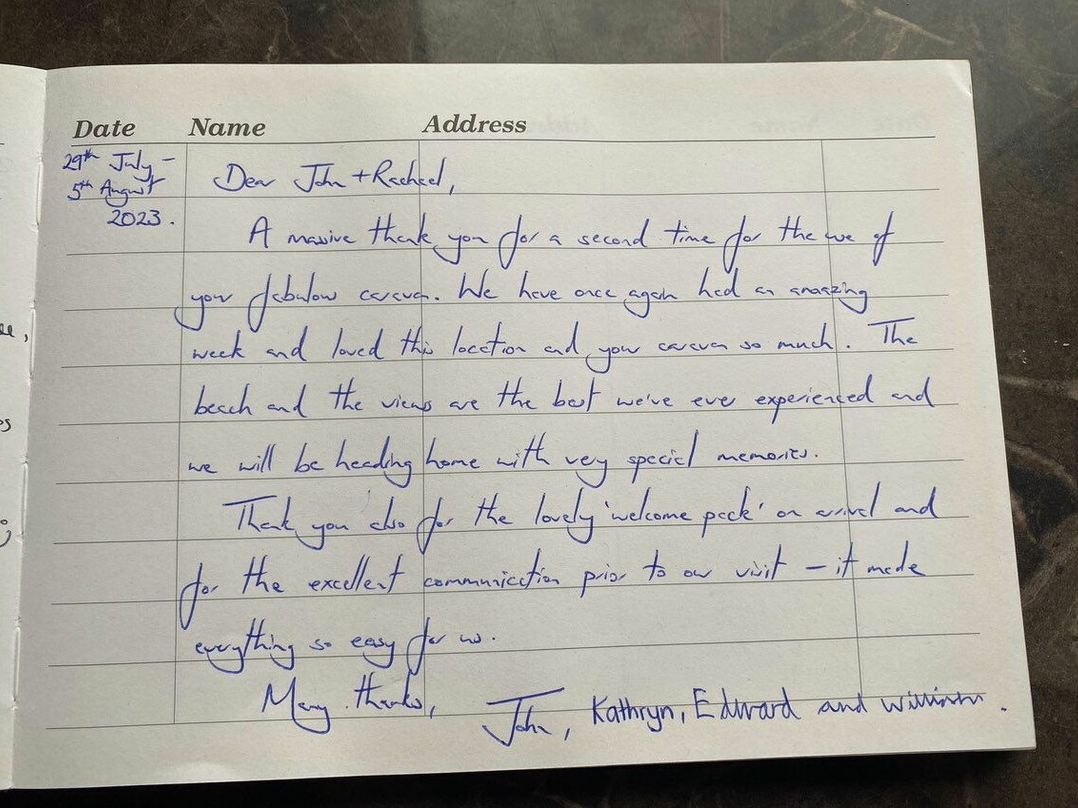 Date Name Address
29th July -
5th August
2023.
Dear John + Rachael,
A massive thank you for a second time for the use of
your fabulous caravan. We have once again had an amazing
week and loved this location and your caravan so much. The
beach and the views are the best we've ever experienced and
we will be heading home with very special memories.
Thank you also for the lovely 'welcome pack' on arrival and
for the excellent communication prior to our visit - it made
everything so easy for us.
Many thanks,
John, Kathryn, Edward and William.